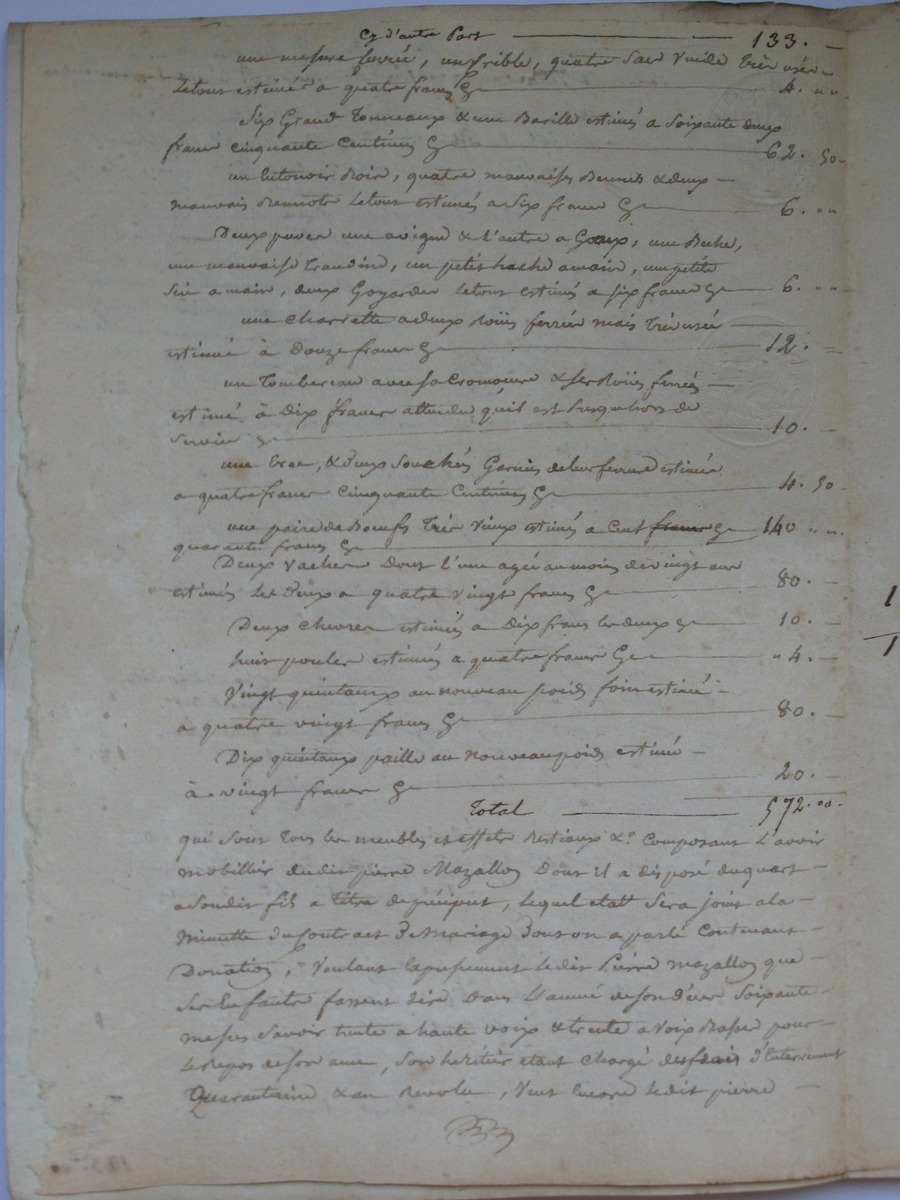 Cy d'autre Part 133. —
une mesure ferrée, un Crible, quatre Sacs vuide très usés —
Letout estimés a quatre francs Cy 4. " "
Six Grand Tonneaux & une Barille estimés a Soixante deux
francs cinquante Centimes Cy 62. 50 —
un Entonoir Boire, quatre mauvaises Bennes & deux —
mauvais Letout estimés a Six francs Cy 6. " "
Deux une a vigne & l'autre a une Beche,
une mauvaise un petit hache a main, une petite
Sie a main, deux Goyardes Letout estimés a Six francs Cy 6. " "
une Charrette a deux Roües ferrées mais Très usée —
estimée à Douze francs Cy 12. —
un Tombereau avec Sa & Ses Roües ferrées —
estimé à Dix francs attendu qu'il est Presque hors de
Service Cy 10. —
une & deux Souchés Garnies de leur ferrure estimée
a quatre francs Cinquante Centimes Cy 4. 50
une paire de Boeufs Très Vieux estimés a Cent francs Cy 140 " "
quarante francs Cy
Deux Vaches Dont l'une agée au moins de vingt ans
estimés Les Deux a quatre Vingt francs Cy 80. —
Deux Chevres estimés a Dix francs les deux Cy 10. —
huit poules estimés a quatre francs Cy " 4. —
Vingt quintaux au nouveau poids foin estimé —
a quatre vingt francs Cy 80. —
Dix quintaux paille au nouveau poids estimé —
à vingt francs Cy 20. —
Total 572. 00.
qui Sont Tous les meubles et effets Bestiaux &a. Composant L'avoir
mobillier dudit pierre Mazallon Dont il a disposé du quart —
a Son dit fils a titre de préciput, Lequel etatt Sera joint a la —
Minutte du Contract De Mariage Dont on a parlé Contenant —
Donation, Voulant Ledit Pierre Mazallon que —
Ses Enfants fassent dire Dans L'année de son décès Soixante —
messes Savoir trente a haute voix & trente a Voix Basse pour —
Le Repos de Son ame, Son heritier etant Chargé des frais d'Enterrement
Quarantaine & an Revolu, Veut Encore Ledit pierre —
1
1